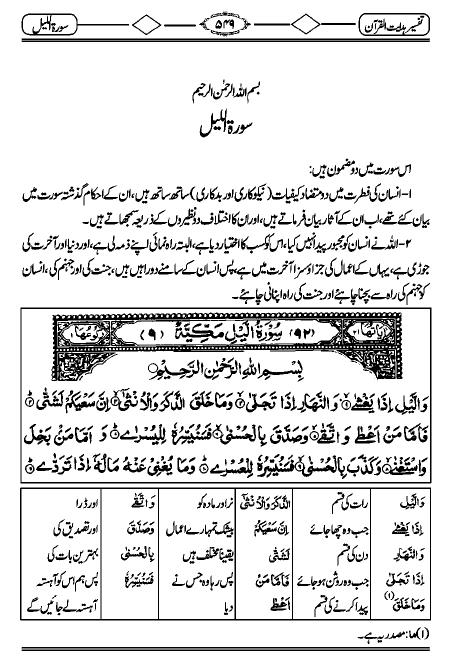 تفسیر ہدایت القرآن
۵۴۹
سورة الليل
بسم اللہ الرحمٰن الرحیم
سورة الليل
اس سورت میں دو مضمون ہیں:
۱- انسان کی فطرت میں دو متضاد کیفیات (نیکوکاری اور بدکاری) ساتھ ساتھ ہیں، ان کے احکام گذشتہ سورت میں
بیان کئے تھے، اب ان کے آثار بیان فرماتے ہیں، اور ان کا اختلاف دو نظیروں کے ذریعہ سمجھاتے ہیں۔
۲- اللہ نے انسان کو مجبور پیدا نہیں کیا، اس کو کسب کا اختیار دیا ہے، البتہ راہ نمائی اپنے ذمہ لی ہے، اور دنیا اور آخرت کی
جوڑی ہے، یہاں کے اعمال کی جزاؤ سزا آخرت میں ہے، پس انسان کے سامنے دو راہیں ہیں، جنت کی اور جہنم کی، انسان
کو جہنم کی راہ سے بچنا چاہئے اور جنت کی راہ اپنانی چاہئے۔
اٰیَاتُهَا (۹۲) سُوْرَةُ الَّيْلِ مَكِّيَّةٌ (۹) رُكُوْعُهَا
بِسْمِ اللهِ الرَّحْمٰنِ الرَّحِيْمِ
وَالَّيْلِ اِذَا يَغْشٰى ۙ وَالنَّهَارِ اِذَا تَجَلّٰى ۙ وَمَا خَلَقَ الذَّكَرَ وَالْاُنْثٰۤى ۙ اِنَّ سَعْيَكُمْ لَشَتّٰى ؕ
فَاَمَّا مَنْ اَعْطٰى وَاتَّقٰى ۙ وَصَدَّقَ بِالْحُسْنٰى ۙ فَسَنُيَسِّرُهٗ لِلْيُسْرٰى ؕ وَاَمَّا مَنْۢ بَخِلَ
وَاسْتَغْنٰى ۙ وَكَذَّبَ بِالْحُسْنٰى ۙ فَسَنُيَسِّرُهٗ لِلْعُسْرٰى ؕ وَمَا يُغْنِيْ عَنْهُ مَالُهٗۤ اِذَا تَرَدّٰى ؕ
وَالَّيْلِ رات کی قسم الذَّكَرَ وَالْاُنْثٰۤى نر اور مادہ کو وَاتَّقٰى اور ڈرا
اِذَا يَغْشٰى جب وہ چھا جائے اِنَّ سَعْيَكُمْ بیشک تمہارے اعمال وَصَدَّقَ اور تصدیق کی
وَالنَّهَارِ دن کی قسم لَشَتّٰى یقیناً مختلف ہیں بِالْحُسْنٰى بہترین بات کی
اِذَا تَجَلّٰى جب وہ روشن ہوجائے فَاَمَّا مَنْ پس رہا وہ جس نے فَسَنُيَسِّرُهٗ پس ہم اس کو آہستہ
وَمَا خَلَقَ (۱) پیدا کرنے کی قسم اَعْطٰى دیا آہستہ لے جائیں گے
(۱) ما: مصدریہ ہے۔